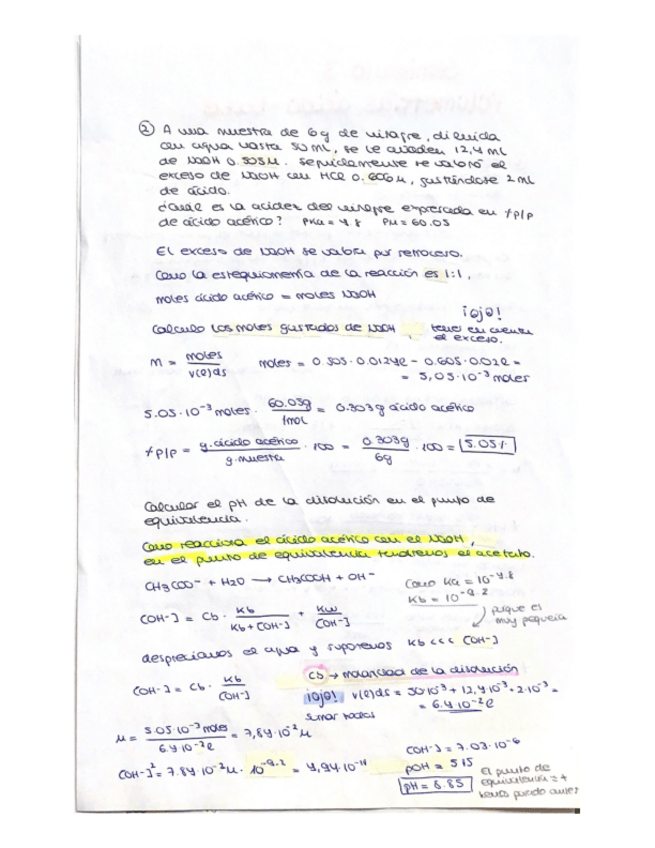 ② A una muestra de 6g de vinagre, diluida
con agua hasta 50 ml, se le añaden 12,4 ml
de NaOH 0.505M. Seguidamente se valoró el
exceso de NaOH con HCl 0.606M, gastándose 2 ml
de ácido.
¿Cuál es la acidez del vinagre expresada en % p/p
de ácido acético? PKa = 4.8 PM = 60.05
El exceso de NaOH se valora por retroceso.
Como la estequiometría de la reacción es 1:1,
moles ácido acético = moles NaOH
¡ojo!
Calculo los moles gastados de NaOH tener en cuenta
el exceso.
M = moles / V(l) ds moles = 0.505 · 0.0124l - 0.605 · 0.002l =
= 5,05·10⁻³ moles
5.05·10⁻³ moles · 60.05g / 1mol = 0.303g ácido acético
% p/p = g. ácido acético / g. muestra · 100 = 0.303g / 6g · 100 = 5.05%
Calcular el pH de la disolución en el punto de
equivalencia.
Como reacciona el ácido acético con el NaOH,
en el punto de equivalencia tendremos el acetato.
CH3COO⁻ + H2O → CH3COOH + OH⁻ Como Ka = 10⁻⁴·⁸
Kb = 10⁻⁹·²
[OH-] = Cb · Kb / Kb + [OH-] + Kw / [OH-] porque es
muy pequeña
despreciamos el agua y suponemos Kb <<< [OH-]
Cb → molaridad de la disolución
[OH-] = Cb · Kb / [OH-] ¡ojo! V(l) ds = 50·10⁻³ + 12,4·10⁻³ + 2·10⁻³ =
sumar todos = 6.4·10⁻²l
M = 5.05·10⁻³ moles / 6.4·10⁻²l = 7,84·10⁻²M
[OH-]² = 7.84·10⁻²M · 10⁻⁹·² = 4,94·10⁻¹¹
[OH-] = 7.03·10⁻⁶
pOH = 5,15
pH = 8.85
El punto de
equivalencia ≠ 7